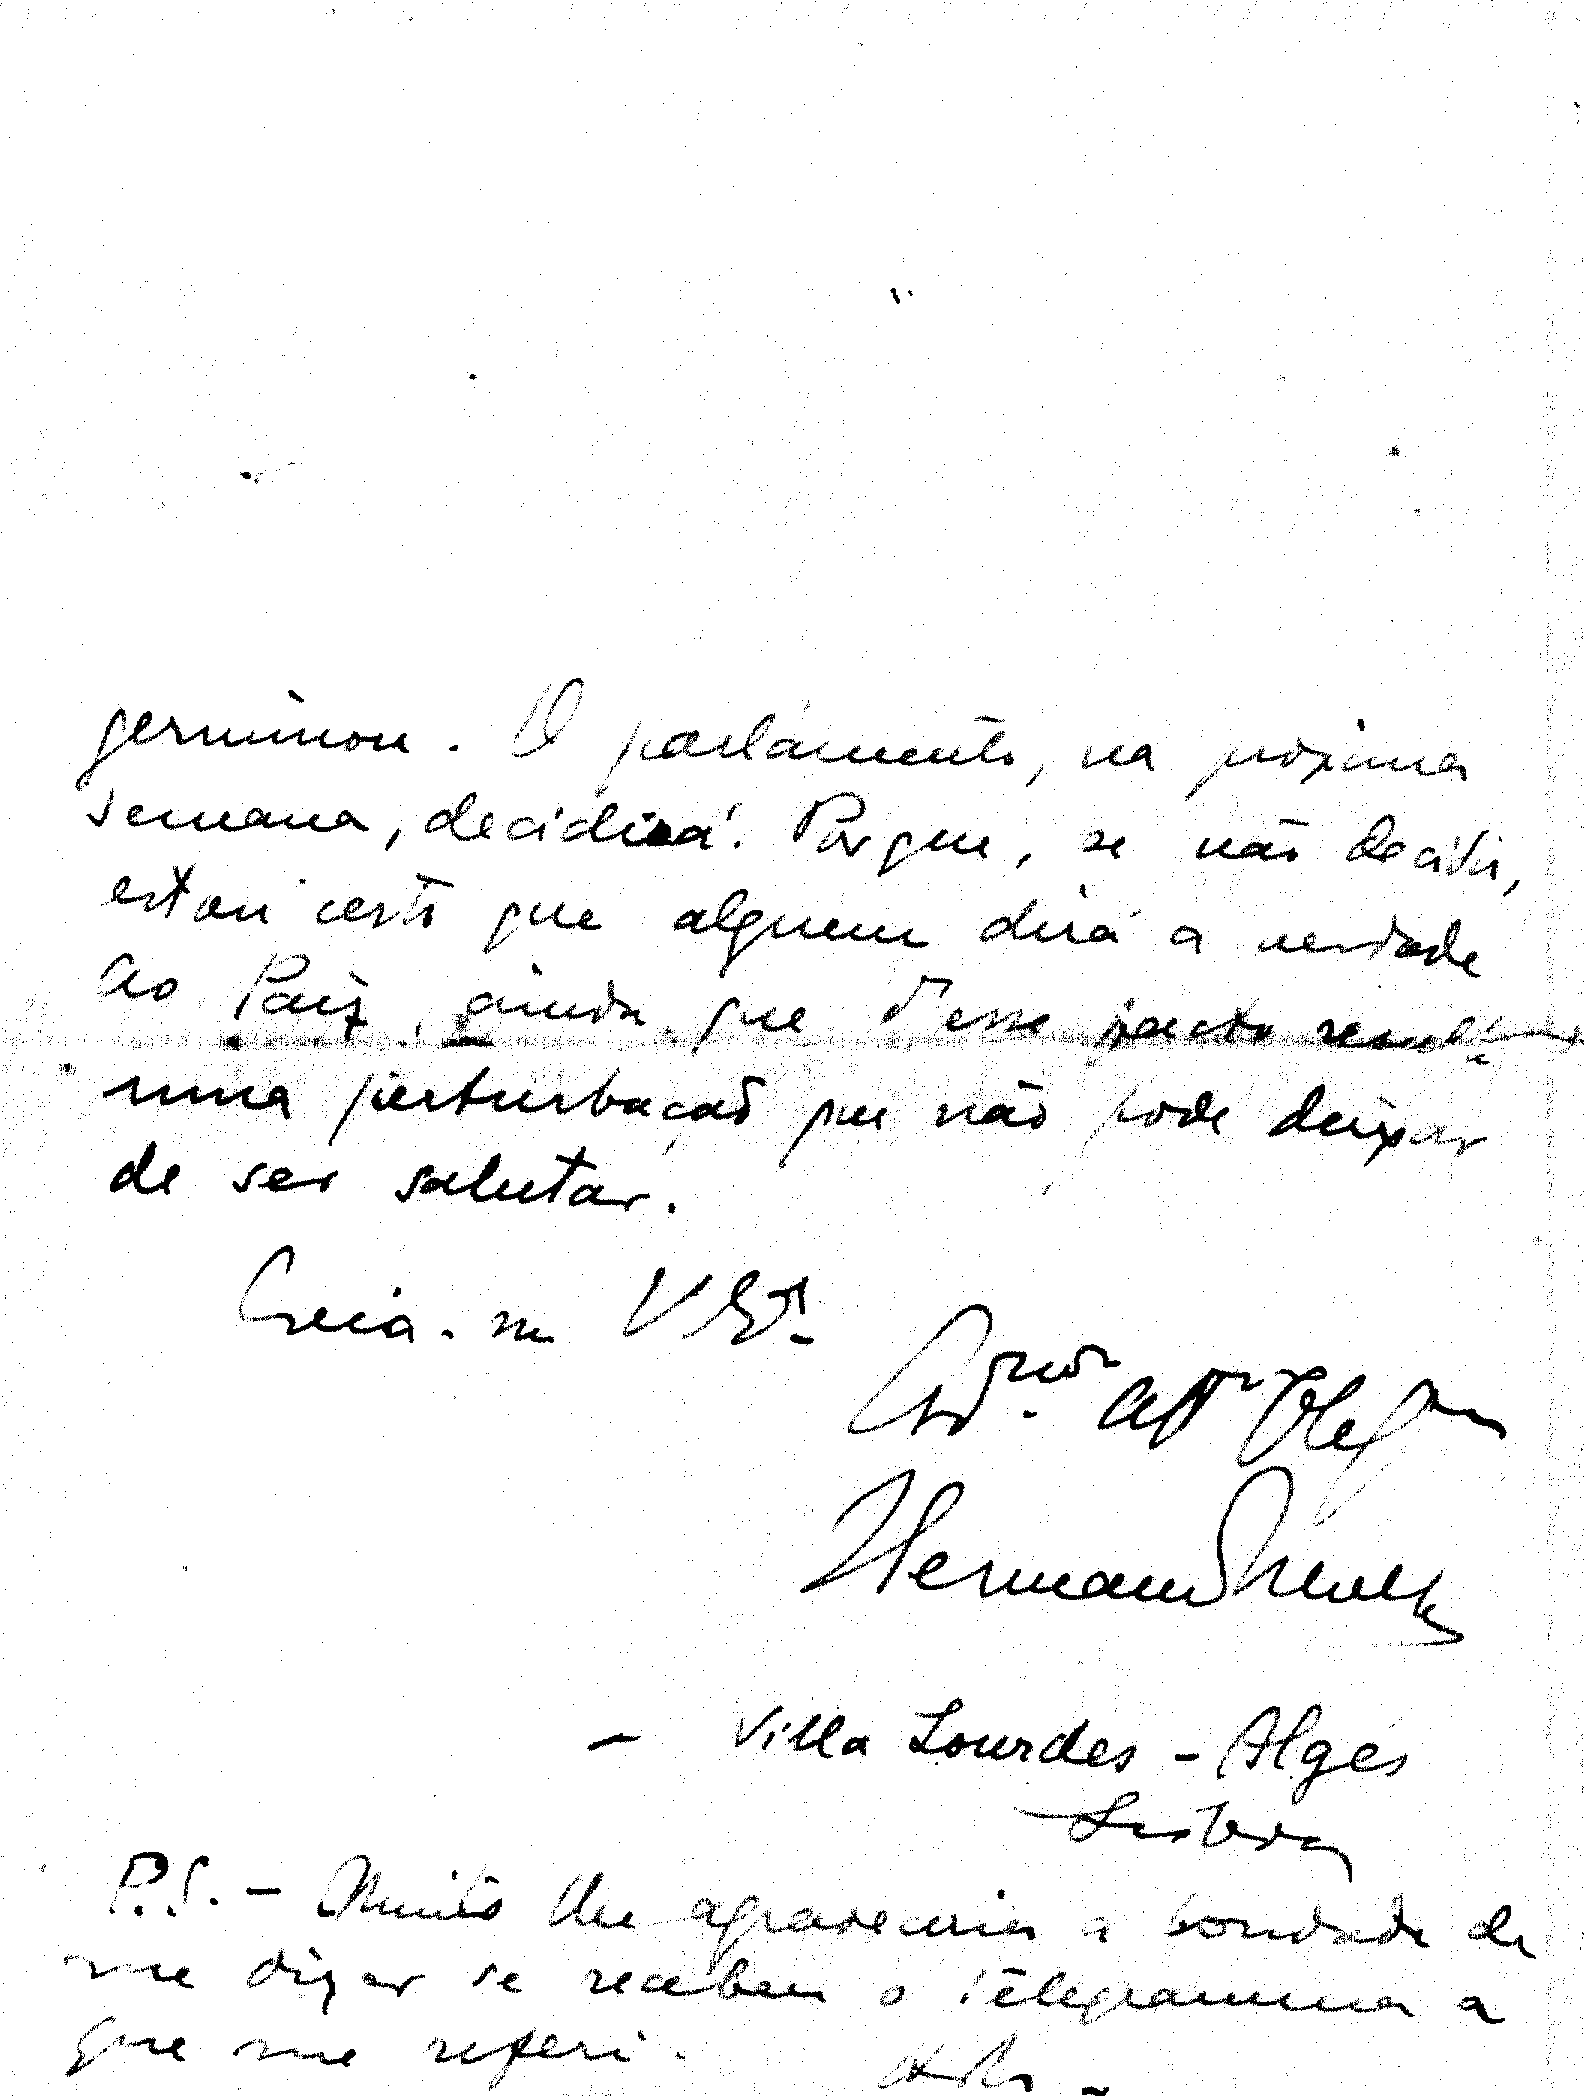 germinou. O parlamento, na proxima
semana, decidirá. Porque, se não decidir,
estou certo que alguem dirá a verdade
ao Paiz, ainda que d'esse facto resulte
uma perturbação que não pode deixar
de ser salutar.
Creia-me V Ex.ª
Cr.do att.º
Hermano Neves
- Villa Lourdes - Algés
Lisboa
P.S. - Muito lhe agradeceria a bondade de
me dizer se recebeu o telegramma a
que me referi.